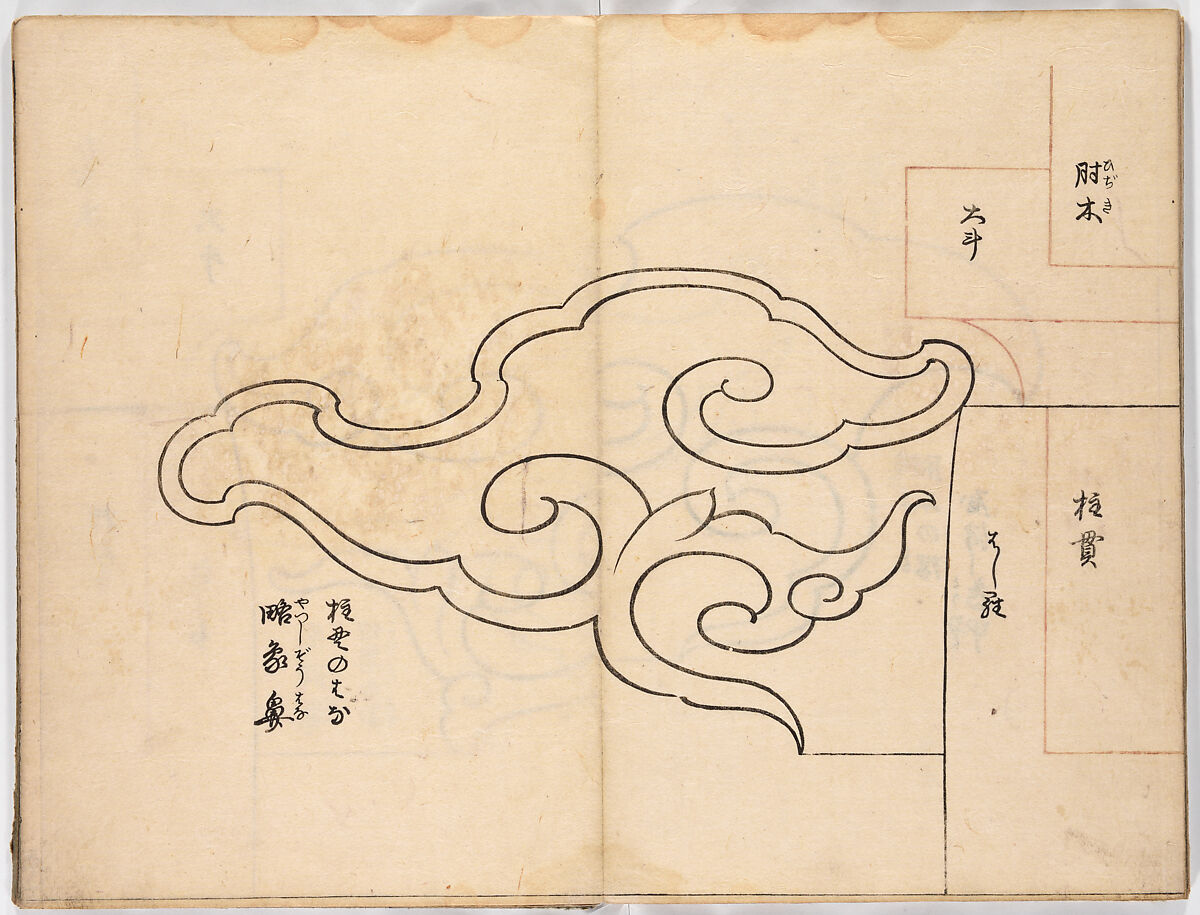 肘木
ひぢき
大斗
柱貫
はしら
柱貫のはな
略象鼻
やつしぞうはな